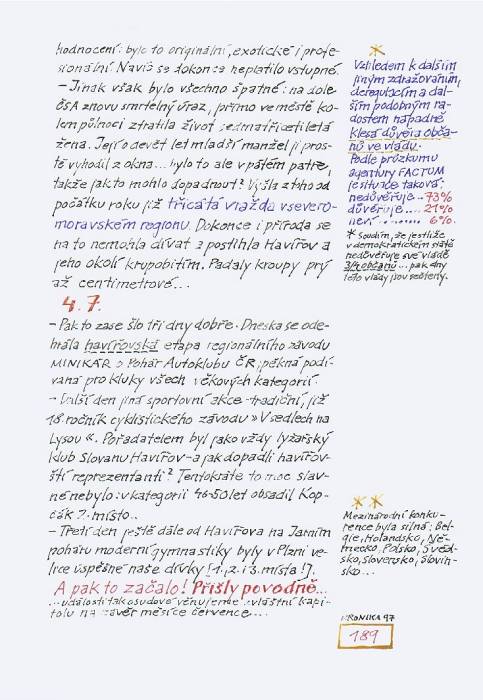 hodnocení: bylo to originální, exotické i profe-
sionální. Navíc se dokonce neplatilo vstupné.
- Jinak však bylo všechno špatné: na dole
ČSA znovu smrtelný úraz, přímo ve městě ko-
lem půlnoci ztratila život sedmatřicetiletá
žena. Její o devět let mladší manžel ji pros-
tě vyhodil z okna... bylo to ale v pátém patře,
takže jak to mohlo dopadnout? Vyšla z toho od
počátku roku již třicátá vražda v severo-
moravském regionu. Dokonce i příroda se
na to nemohla dívat a postihla Havířov a
jeho okolí krupobitím. Padaly kroupy prý
až centimetrové...
4.7.
- Pak to zase šlo tři dny dobře. Dneska se ode-
hrála havířovská etapa regionálního závodu
MINIKÁR o Pohár Autoklubu ČR, pěkná podí-
vaná pro kluky všech věkových kategorií.
- Další den jiná sportovní akce - tradiční, již
18. ročník cyklistického závodu »V sedlech na
Lysou«. Pořadatelem byl jako vždy lyžařský
klub Slovanu Havířov - a jak dopadli havířov-
ští reprezentanti? Tentokráte to moc slav-
né nebylo: v kategorii 46-50 let obsadil Kop-
čák 7. místo..
- Třetí den ještě dále od Havířova na Jarním
poháru moderní gymnastiky byly v Plzni ve-
lice úspěšné naše dívky (1., 2. i 3. místa!).
A pak to začalo! Přišly povodně...
...události tak osudové věnujeme zvláštní kapi-
tolu na závěr měsíce července...
*
Vzhledem k dalším
jiným zdražováním,
deregulacím a dal-
ším podobným ra-
dostem nápadně
klesá důvěra obča-
nů ve vládu.
Podle průzkumu
agentury FACTUM
je situace taková:
nedůvěřuje... 73%
důvěřuje... 21%
neví......... 6%.
* Soudím, že jestliže
v demokratickém státě
nedůvěřuje své vládě
3/4 občanů... pak dny
této vlády jsou sečteny.
**
Mezinárodní konku-
rence byla silná: Bel-
gie, Holandsko, Ně-
mecko, Polsko, Švéd-
sko, Slovensko, Slovin-
sko...
KRONIKA 97
189